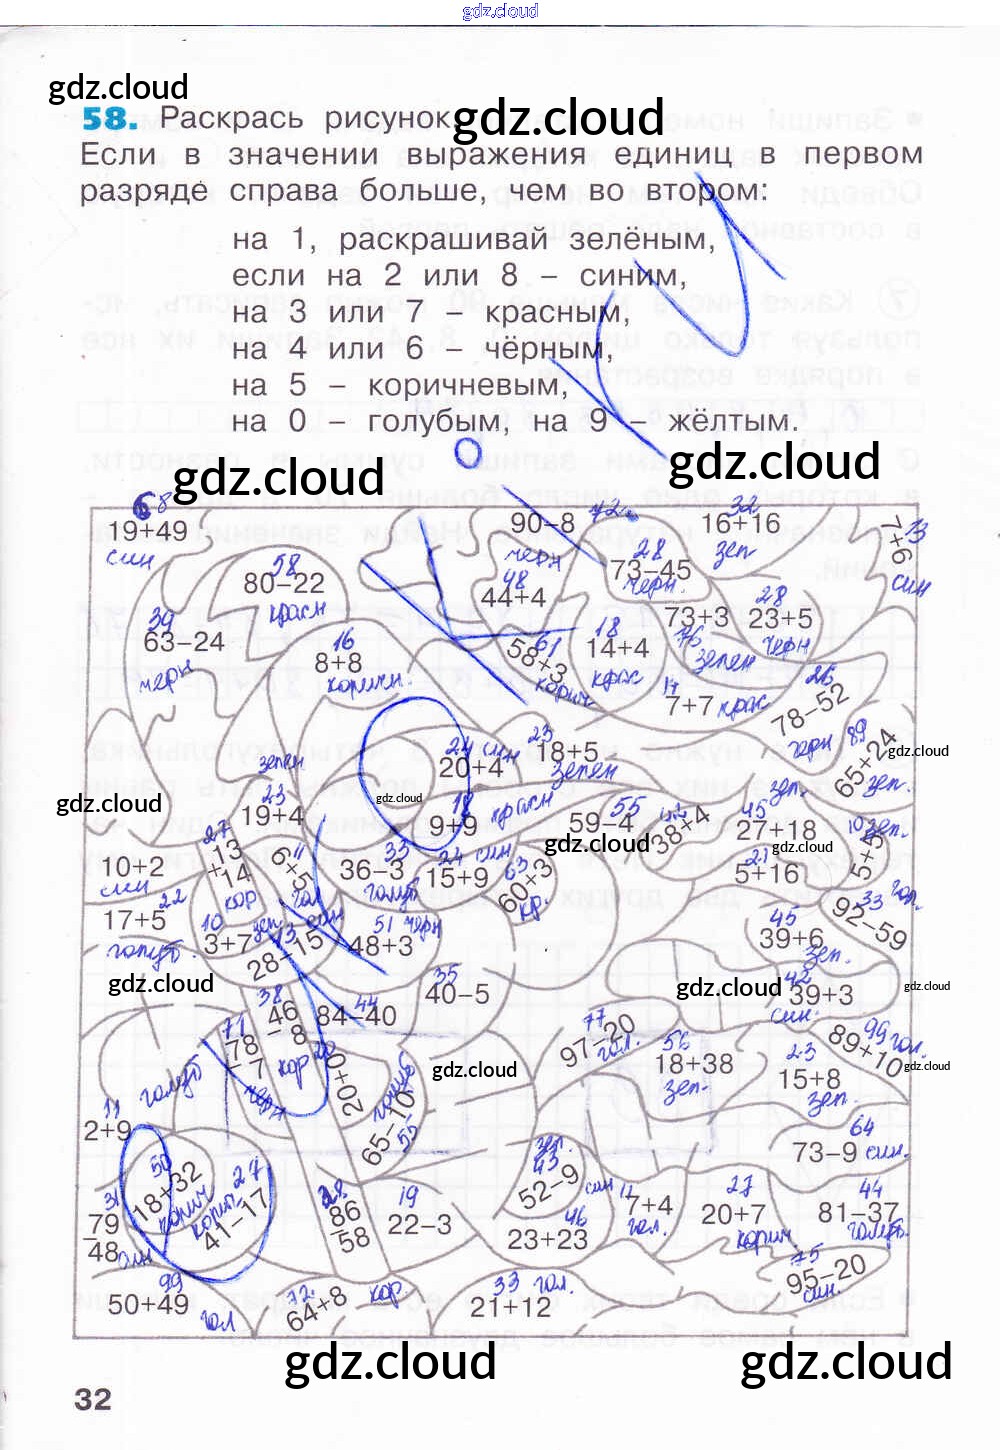 gdz.cloud
gdz.cloud
58. Раскрась рисунок.
gdz.cloud
Если в значении выражения единиц в первом
разряде справа больше, чем во втором:
на 1, раскрашивай зелёным,
если на 2 или 8 – синим,
на 3 или 7 – красным,
на 4 или 6 – чёрным,
на 5 – коричневым,
на 0 – голубым, на 9 – жёлтым.
gdz.cloud
gdz.cloud
68
19+49
син
90–8
72
черн
32
16+16
зел
7+6
13
син
58
80–22
красн
48
44+4
28
73–45
черн.
39
63–24
черн
16
8+8
коричн.
61
58+3
корич
18
14+4
крас
73+3
76
зелен
28
23+5
черн
7+7
крас
26
78–52
черн
24 син
20+4
23
18+5
зелен
89
65+24
зел.
gdz.cloud
зелен
23
19+4
gdz.cloud
gdz.cloud
18
9+9
красн
55
59–4
38+4
зел.
45
27+18
10 зел.
5+5
gdz.cloud
gdz.cloud
10+2
син
27
13
+14
кор
6+5
11
гол
33
36–3
голуб
24 син
15+9
63
60+3
кр.
21
5+16
22
17+5
голуб.
10
3+7
зел
13
28–15
51 черн
48+3
45
39+6
зел.
33 гол.
92–59
gdz.cloud
38
46
–8
кор
44
84–40
35
40–5
gdz.cloud
42
39+3
син.
gdz.cloud
71
78
–7
черн
20+20
голуб
65–10
55
gdz.cloud
77
97–20
гол.
56
18+38
зел.
99 гол.
89+10
gdz.cloud
23
15+8
зел.
голуб
11
2+9
64
73–9 син.
50
18+32
корич
27
41–17
корич.
31
79
–48
син
28
86
–58
19
22–3
зел.
43
52–9
син
46
23+23
7+4
гол.
27
20+7
корич.
44
81–37
голуб.
99
50+49
гол
72
64+8
кор.
33 гол.
21+12
75
95–20
син.
gdz.cloud
gdz.cloud
32